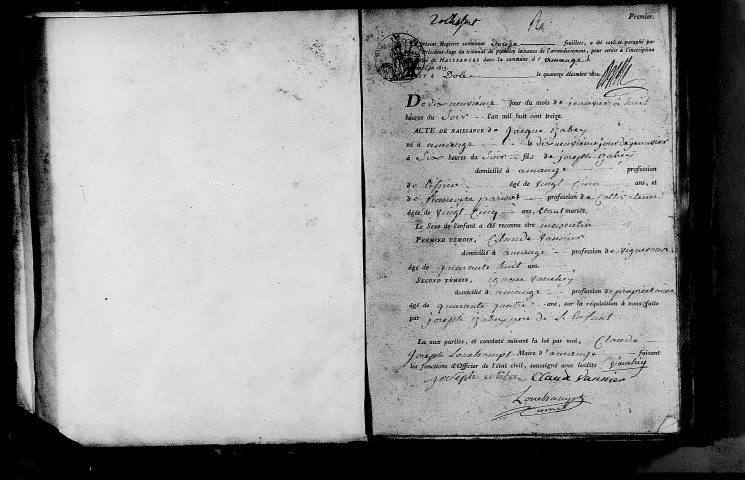 Rochefort
Premier.
Le présent Registre contenant douze feuillets, a été coté et paraphé par
Président-Juge du tribunal de première instance de l'arrondissement, pour servir à l'inscription
de NAISSANCES dans la commune d'amange
l'an 1813.
à Dole le quatorze décembre 1812.
Du dix neuvième jour du mois de janvier à huit
heures du Soir l'an mil huit cent treize.
ACTE DE NAISSANCE de Jacque
né à amange le dix neuvième jour de janvier
à Six heures du Soir fils de joseph
domicilié à amange profession
de âgé de vingt cinq ans, et
de profession de
âgée de vingt cinq ans, étant mariés.
Le Sexe de l'enfant a été reconnu être masculin
PREMIER TÉMOIN, Claude Vannier
domicilié à amange profession de vigneron
âgé de quarante huit ans.
SECOND TÉMOIN, ignace
domicilié à amange profession de propriétaire
âgé de quarante quatre ans, sur la réquisition à nous faite
par joseph père de l'enfant
Lu aux parties, et constaté suivant la loi par moi, Claude
Joseph Maire d'amange faisant
les fonctions d'Officier de l'état civil, soussigné avec lesdits
joseph Claude Vannier